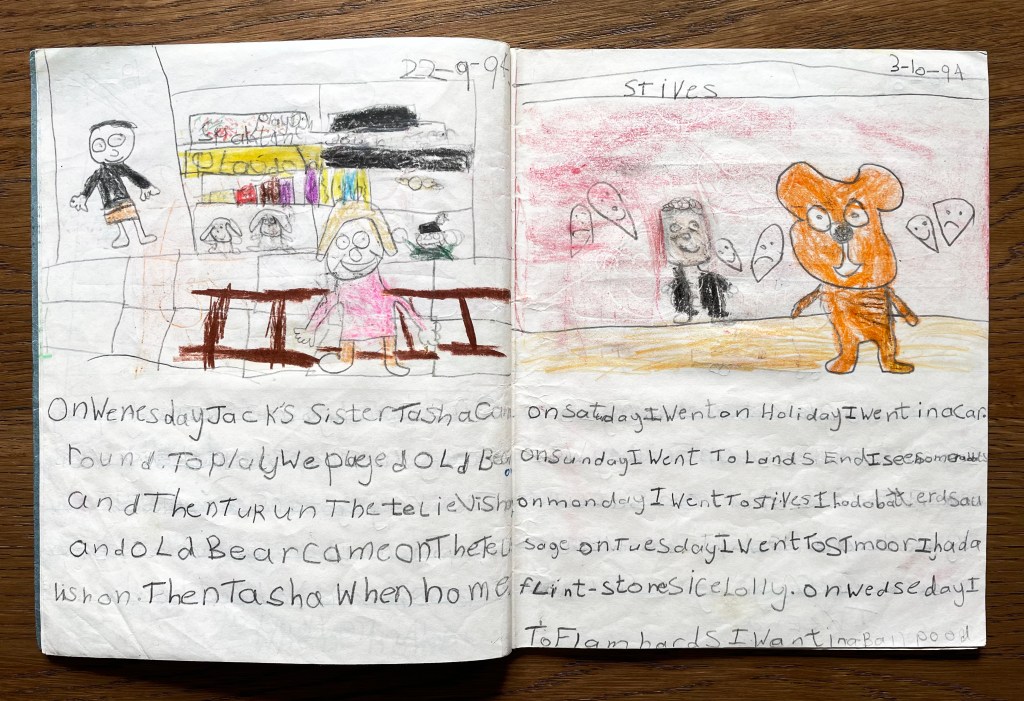 22-9-94
Play
Plaod
On Wenesday Jack's Sister Tasha Cam
round. To play We played OLd Bear
and Then Turun The telievishn
and oLd Bear came on The Teli
vishon. Then Tasha When home.
3-10-94
STIVES
on Satuday I Went on Holiday I went in a Car.
on Sunday I Went To Lands End I see som
on monday I Went To STives I had a baterd sau
sage on Tuesday I Went To STmoor I had a
fLint-stores ice Lolly. on Wedseday I
To FLamhards I Want in a Ball pood